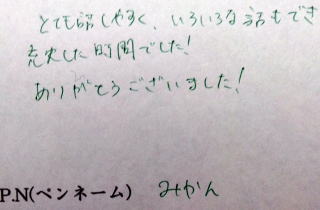 とても話しやすく、いろいろな話もでき
充実した時間でした!
ありがとうございました!
P.N(ペンネーム) みかん